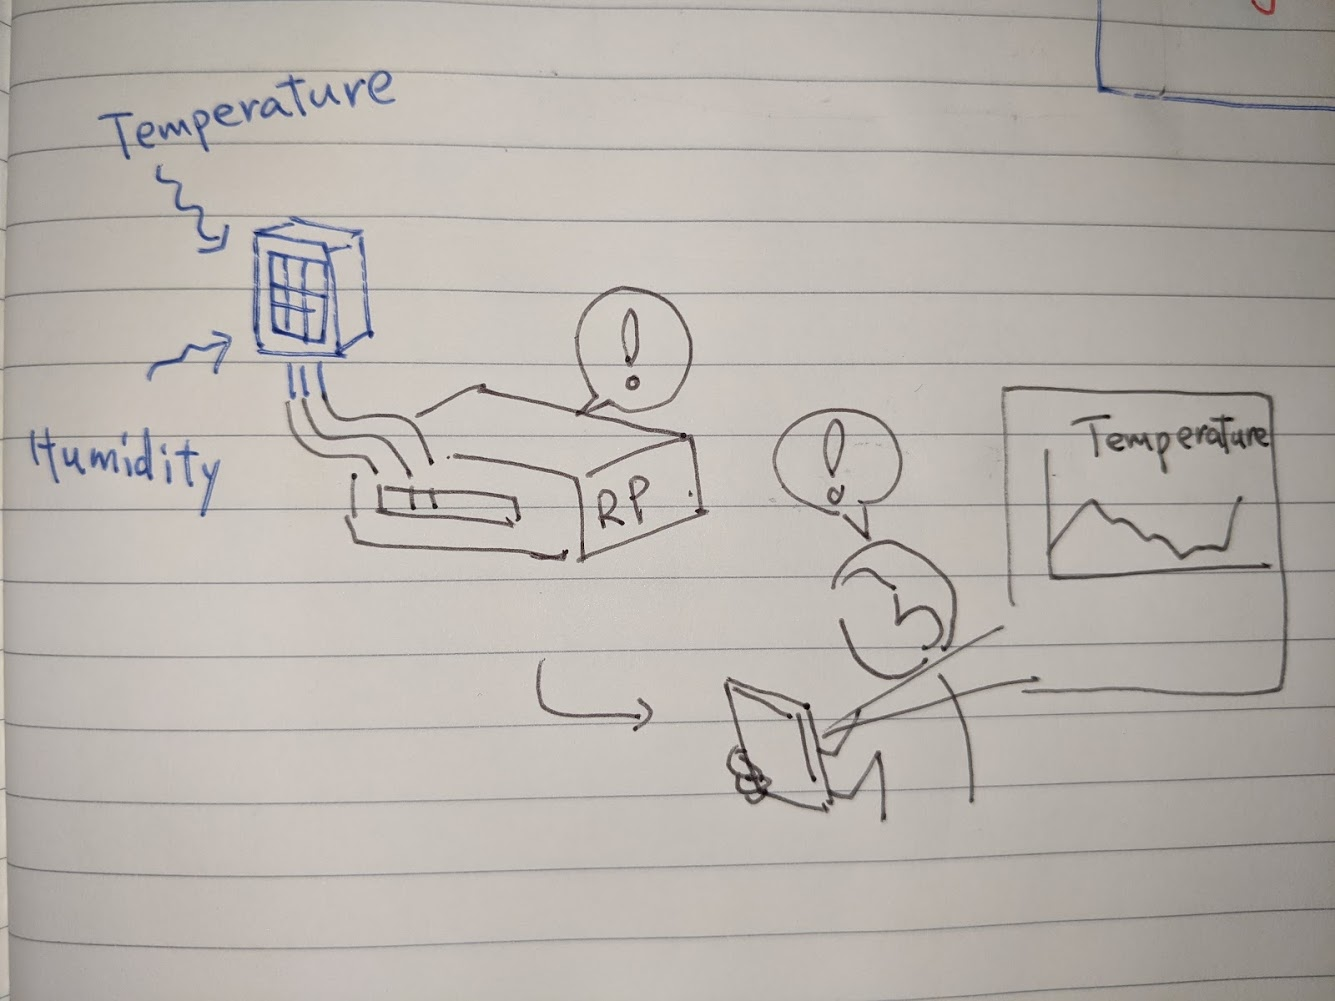 Temperature
Humidity
!
RP
!
Temperature